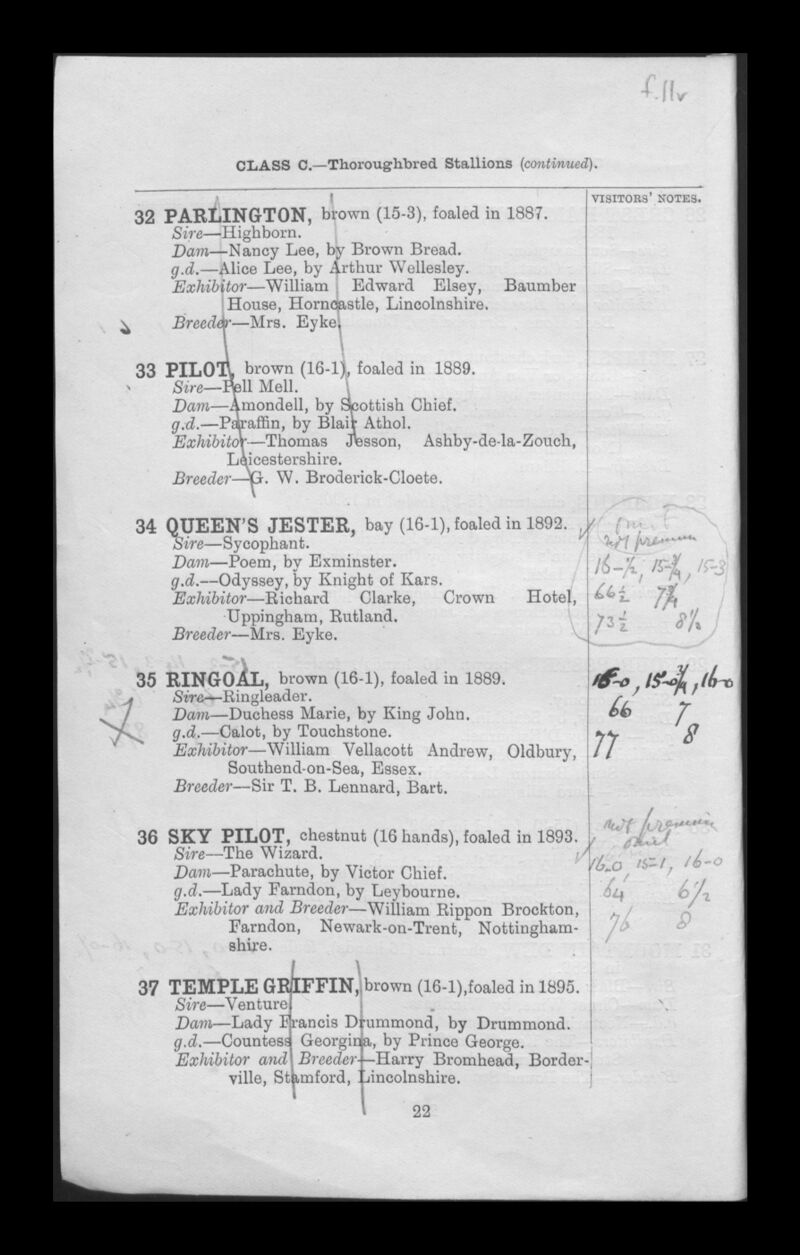 f.11v
CLASS C.—Thoroughbred Stallions (continued).
VISITORS' NOTES.
32 PARLINGTON, brown (15-3), foaled in 1887.
Sire—Highborn.
Dam—Nancy Lee, by Brown Bread.
g.d.—Alice Lee, by Arthur Wellesley.
Exhibitor—William Edward Elsey, Baumber
House, Horncastle, Lincolnshire.
Breeder—Mrs. Eyke.
33 PILOT, brown (16-1), foaled in 1889.
Sire—Pell Mell.
Dam—Amondell, by Scottish Chief.
g.d.—Paraffin, by Blair Athol.
Exhibitor—Thomas Jesson, Ashby-de-la-Zouch,
Leicestershire.
Breeder—G. W. Broderick-Cloete.
34 QUEEN'S JESTER, bay (16-1), foaled in 1892.
Sire—Sycophant.
Dam—Poem, by Exminster.
g.d.—Odyssey, by Knight of Kars.
Exhibitor—Richard Clarke, Crown Hotel,
Uppingham, Rutland.
Breeder—Mrs. Eyke.
omit
not premium
16-½, 15-¾, 15-3
66½ 7¾
73½ 8½
35 RINGOAL, brown (16-1), foaled in 1889.
Sire—Ringleader.
Dam—Duchess Marie, by King John.
g.d.—Calot, by Touchstone.
Exhibitor—William Vellacott Andrew, Oldbury,
Southend-on-Sea, Essex.
Breeder—Sir T. B. Lennard, Bart.
16-0, 15-0¾, 16-0
66 7
77 8
36 SKY PILOT, chestnut (16 hands), foaled in 1893.
Sire—The Wizard.
Dam—Parachute, by Victor Chief.
g.d.—Lady Farndon, by Leybourne.
Exhibitor and Breeder—William Rippon Brockton,
Farndon, Newark-on-Trent, Nottingham-
shire.
not premium
omit
16-0, 15-1, 16-0
64 6½
76 8
37 TEMPLE GRIFFIN, brown (16-1), foaled in 1895.
Sire—Venture.
Dam—Lady Francis Drummond, by Drummond.
g.d.—Countess Georgina, by Prince George.
Exhibitor and Breeder—Harry Bromhead, Border-
ville, Stamford, Lincolnshire.
22